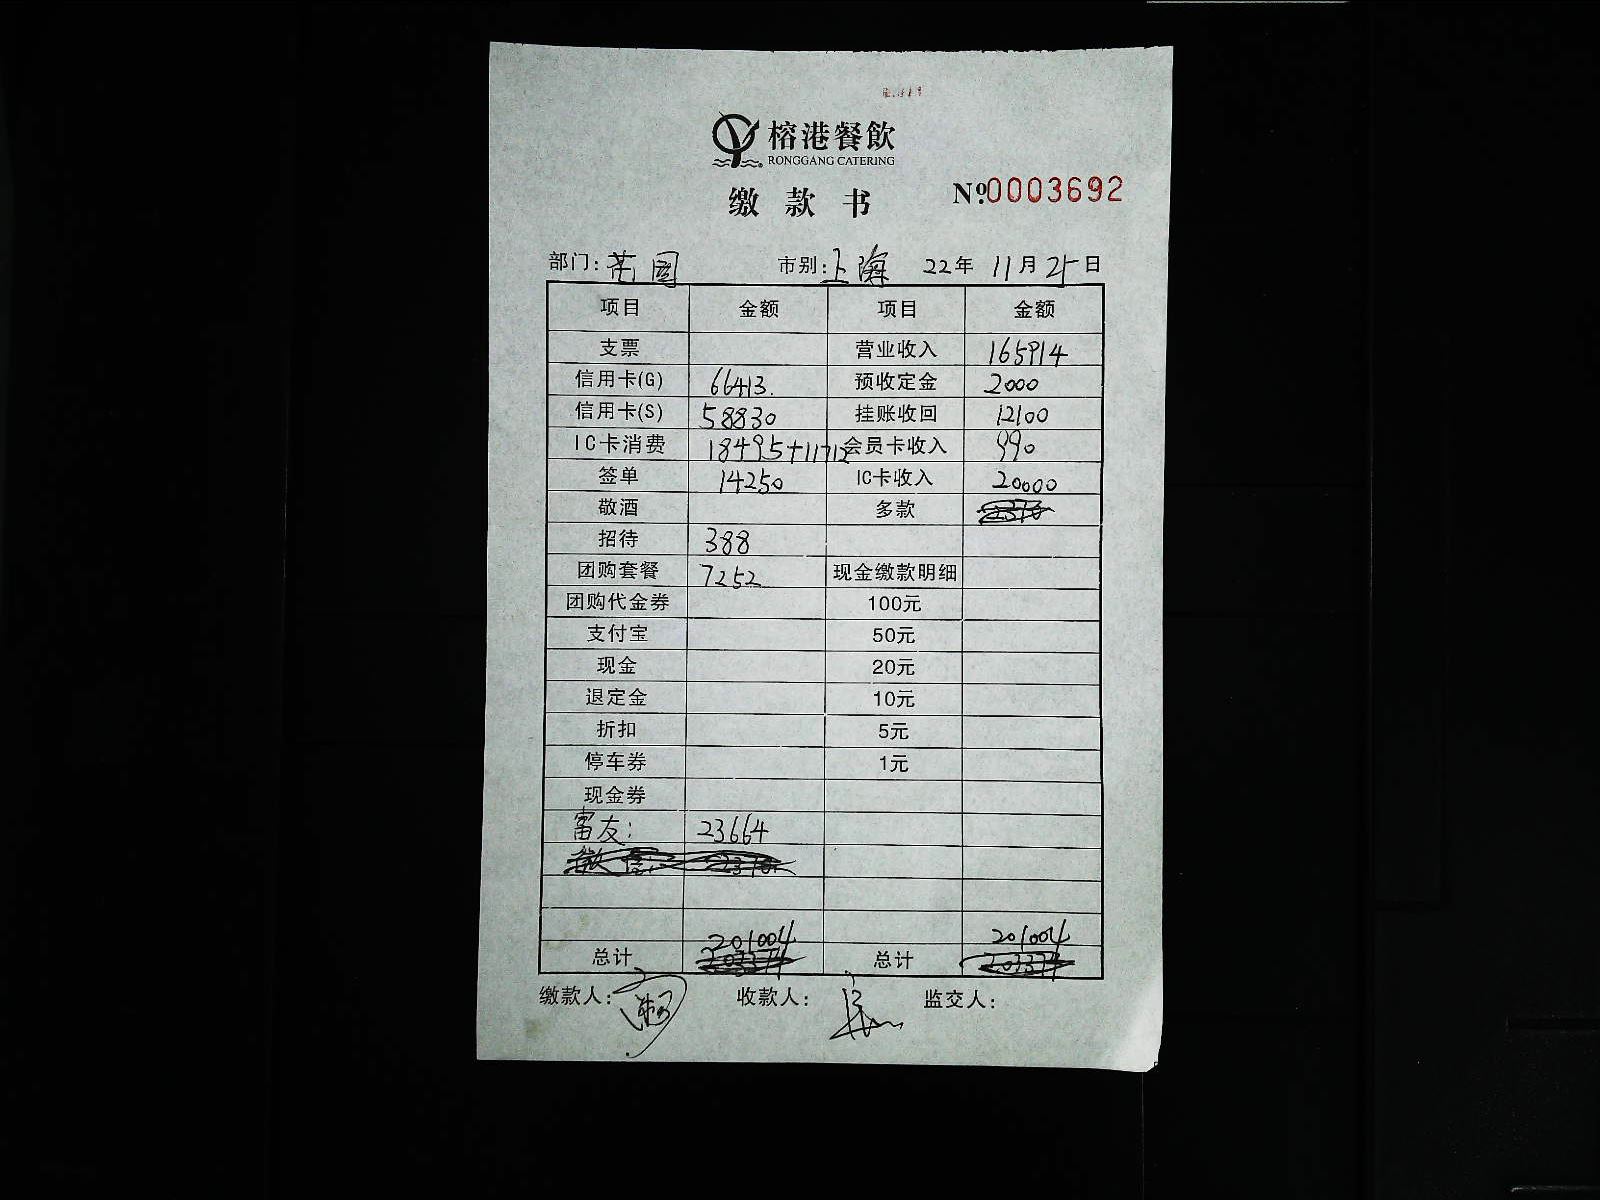 榕港餐飲
RONGGANG CATERING
缴款书 Nº:0003692
部门: 市别:上海 22年 11月 25日
项目 金额 项目 金额
支票 营业收入 165914
信用卡(G) 66413. 预收定金 2000
信用卡(S) 58830 挂账收回 12100
IC卡消费 18495+11712 会员卡收入 990
签单 14250 IC卡收入 20000
敬酒 多款
招待 388
团购套餐 7252 现金缴款明细
团购代金券 100元
支付宝 50元
现金 20元
退定金 10元
折扣 5元
停车券 1元
现金券
富友: 23664
总计 201004 总计 201004
缴款人: 收款人: 监交人: